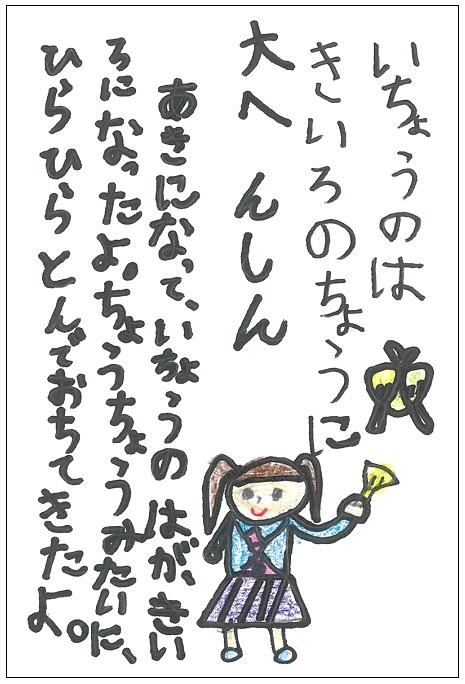 いちょうのは
きいろのちょうに
大へんしん
あきになって、いちょうのはが、きい
ろになったよ。ちょうちょうみたいに、
ひらひらとんでおちてきたよ。